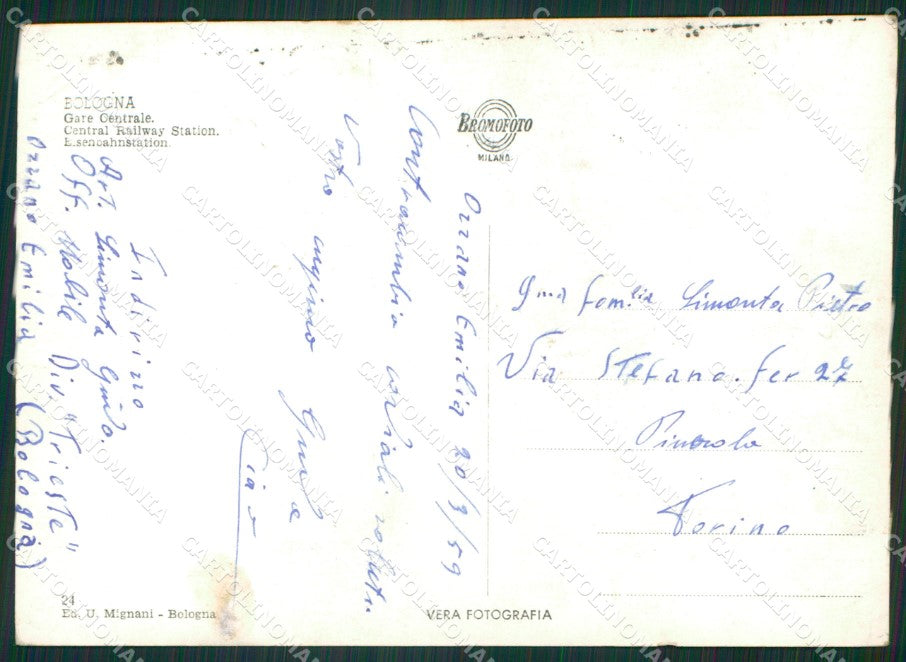 BOLOGNA
Gare Centrale.
Central Railway Station.
Eisenbahnstation.
BROMOFOTO
MILANO
Ozzano Emilia 20/3/59
Contraccambio cordiali saluti.
Vostro cugino Guido
Ciao
Indirizzo
Art. Simonta Guido.
Off. Mobile Div. "Trieste"
Ozzano Emilia (Bologna)
Gma famlia Simonta Pietro
Via Stefano. fer 27
Pinerolo
Torino
24
Ed. U. Mignani - Bologna
VERA FOTOGRAFIA
CARTOLINOMANIA